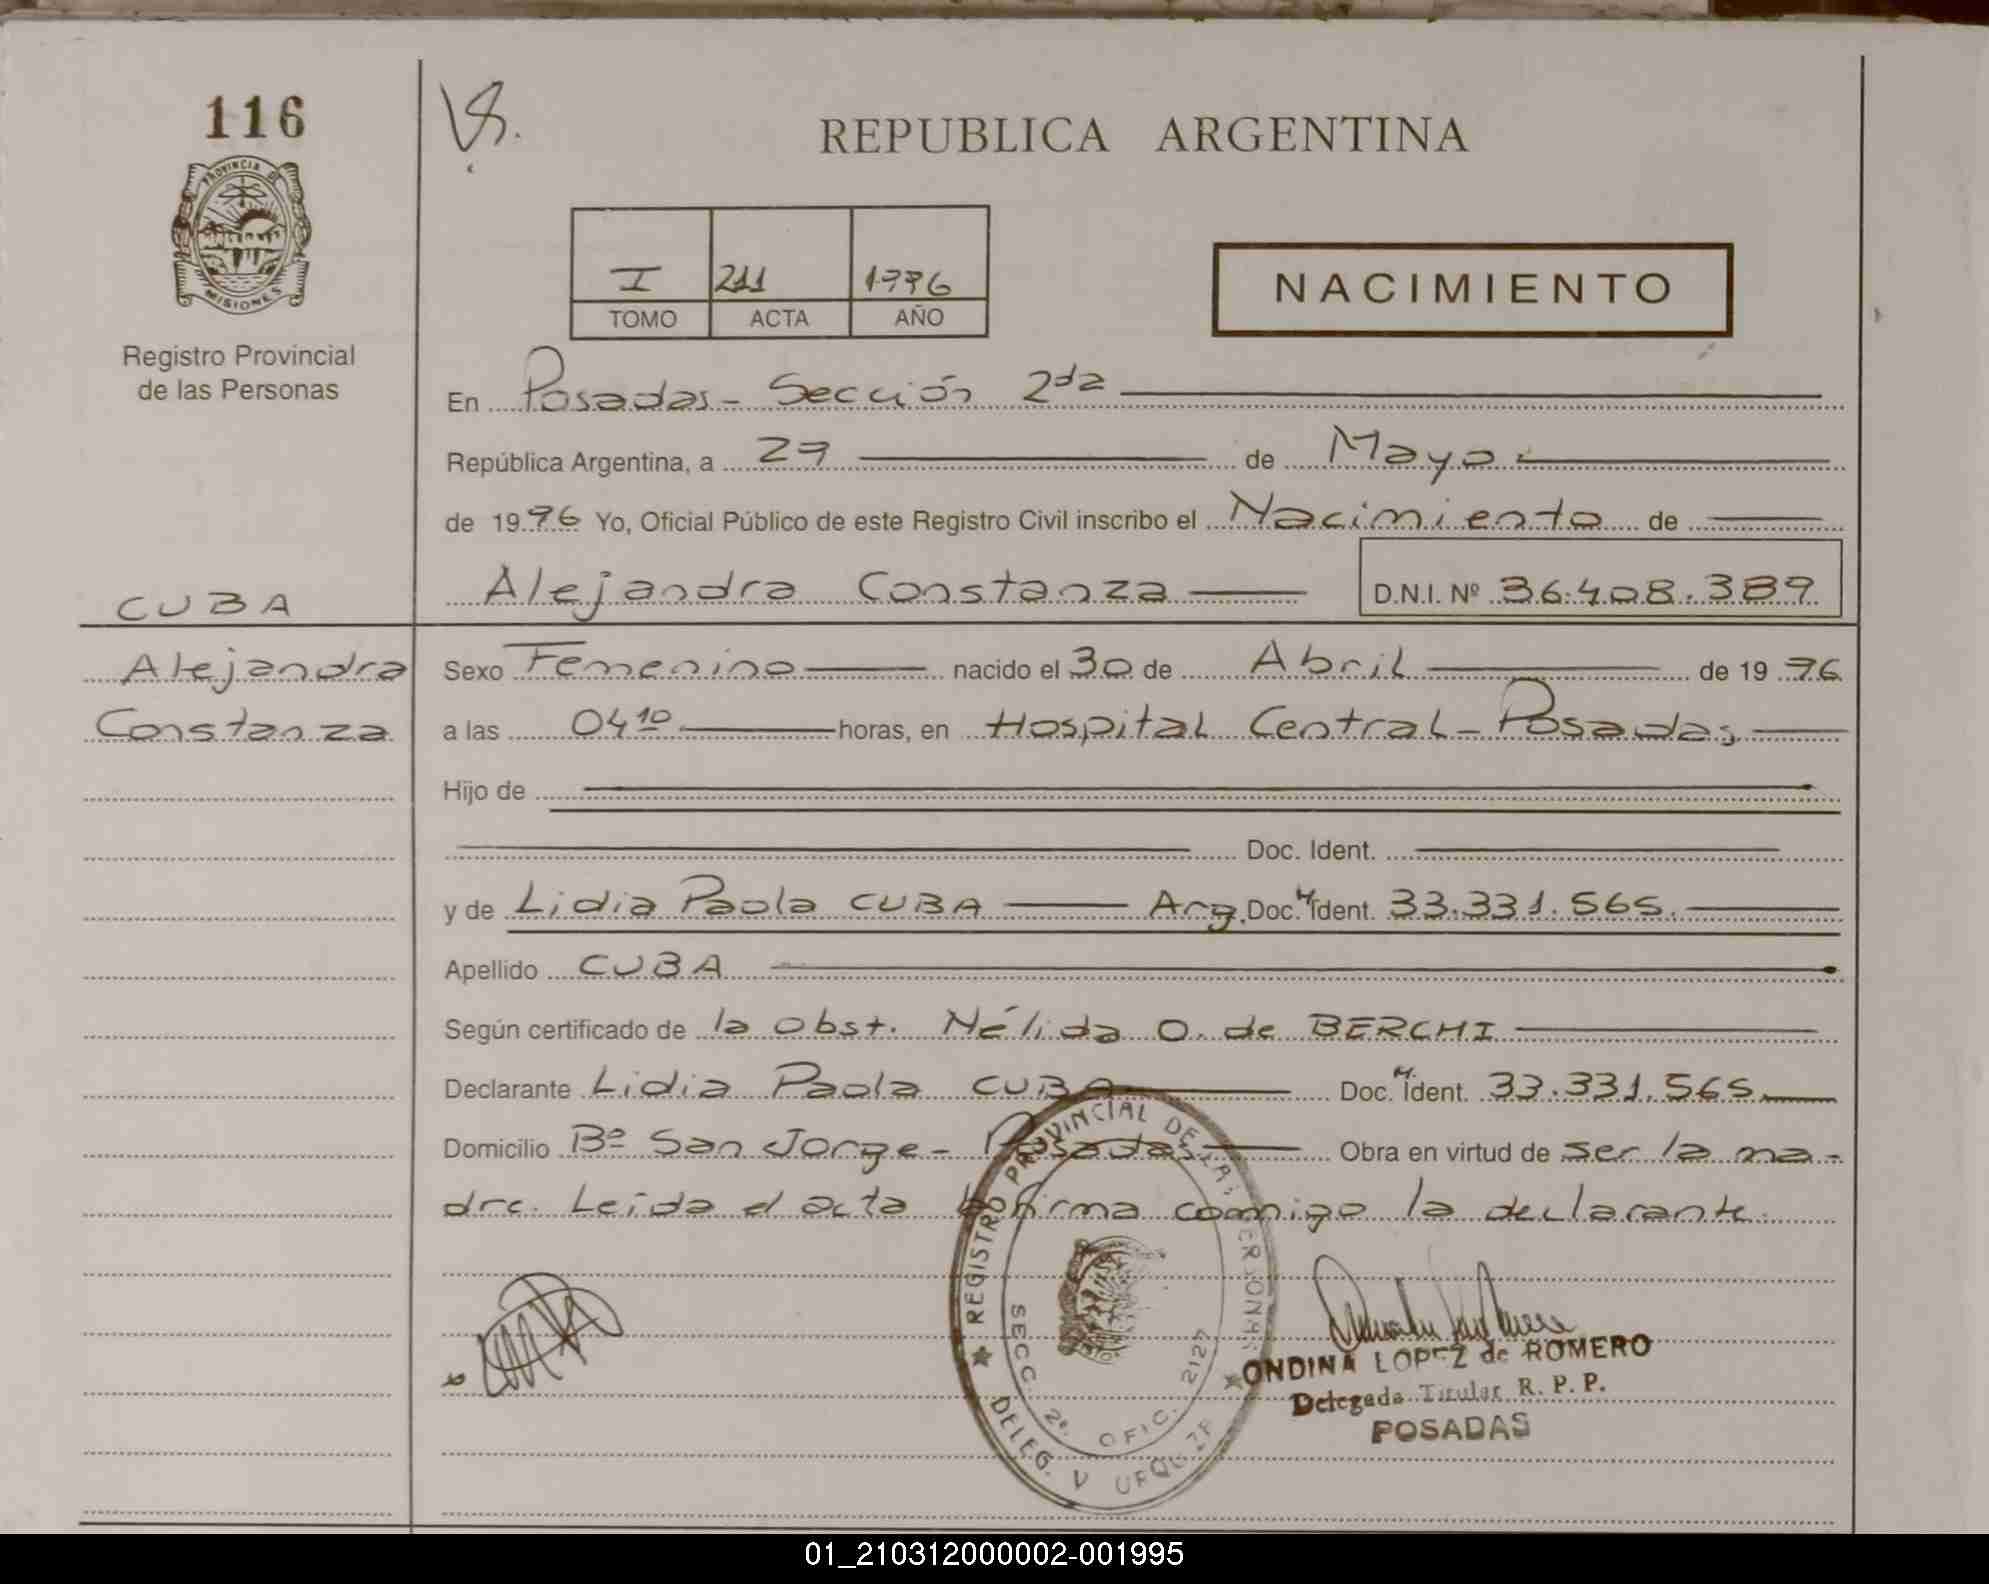 116
PROVINCIA DE
MISIONES
Registro Provincial
de las Personas
REPUBLICA ARGENTINA
I 211 1996
TOMO ACTA AÑO
NACIMIENTO
En Posadas - Sección 2da
República Argentina, a 29 de Mayo
de 1996 Yo, Oficial Público de este Registro Civil inscribo el Nacimiento de
Alejandra Constanza D.N.I. Nº 36.408.389
CUBA
Alejandra
Constanza
Sexo Femenino nacido el 30 de Abril de 1996
a las 04 10 horas, en Hospital Central - Posadas
Hijo de
Doc. Ident.
y de Lidia Paola CUBA Arg. Doc. M Ident. 33.331.565.
Apellido CUBA
Según certificado de la obst. Nélida O. de BERCHI
Declarante Lidia Paola CUBA Doc. M. Ident. 33.331.565
Domicilio Bº San Jorge - Posadas Obra en virtud de ser la ma-
dre. Leída el acta la firma conmigo la declarante.
REGISTRO PROVINCIAL DE LAS PERSONAS
SECC. 2ª. OFIC. 2127
DELEG. V URQUIZA
ONDINA LOPEZ de ROMERO
Delegada Titular R. P. P.
POSADAS
01_210312000002-001995